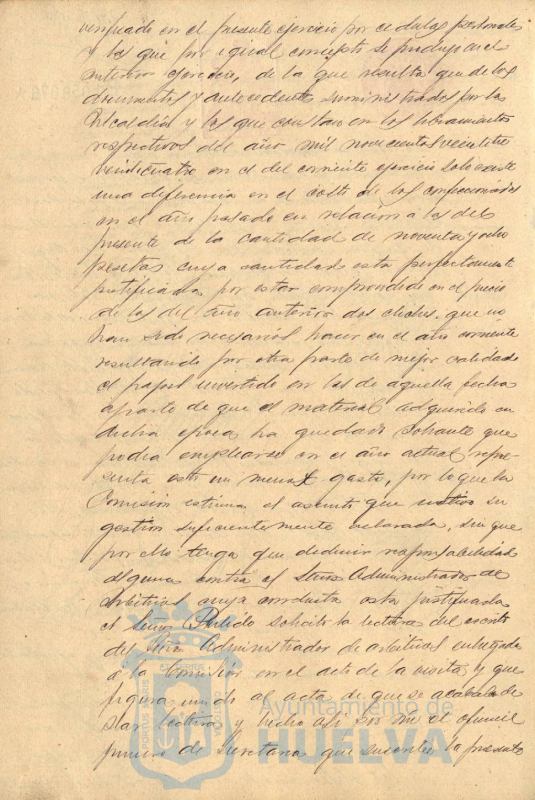 verificado en el presente ejercicio por cedulas personales
y los que por igual concepto se produjo en el
anterior ejercicio, de la que resulta que de los
documentos y antecedentes suministrados por la
Alcaldia y los que constan en los libramientos
respectivos del año mil novecientos veintitres
veinticuatro en el del corriente ejercicio solo existe
una diferencia en el costo de los confeccionados
en el año pasado en relacion a los del
presente de la cantidad de noventa y ocho
pesetas cuya cantidad esta perfectamente
justificada por estar comprendido en el precio
de los del año anterior dos cliches, que no
han sido necesarios hacer en el año corriente
resultando por otra parte de mejor calidad
el papel invertido en los de aquella fecha
aparte de que el material adquirido en
dicha epoca ha quedado sobrante que
podra emplearse en el año actual repre-
senta esto un menor gasto, por lo que la
Comision estima el asunto que motivo su
gestion suficientemente aclarada, sin que
por ello tenga que deducir responsabilidad
alguna contra el Señor Administrador de
Arbitrios cuya conducta esta justificada
el Señor Pulido solicitó la lectura del escrito
del Señor Administrador de arbitrios entregado
a la Comision en el acto de la visita y que
figura unido al acta de que se acaba de
dar lectura y hecho asi por mi el oficial
primero de Secretaria que suscribe la presente
Ayuntamiento de
HUELVA
PORTUS MARIS
CUSTODIA